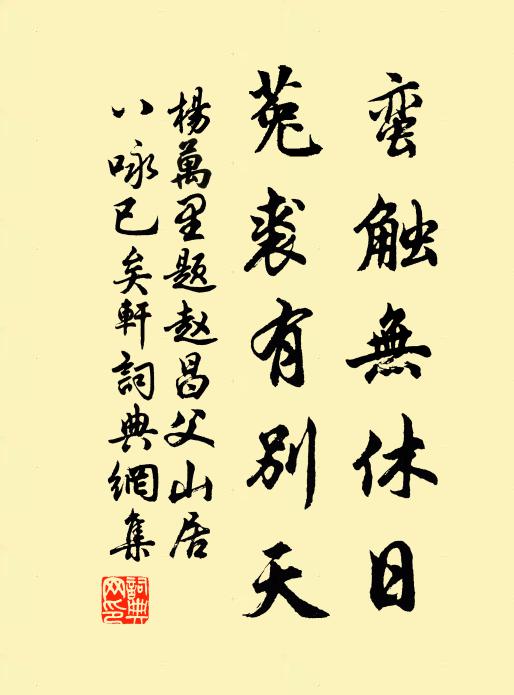 蛮触無休日
菟裘有別天
楊萬里題趙昌父山居
八咏已矣軒詞典網集
詞典
网印